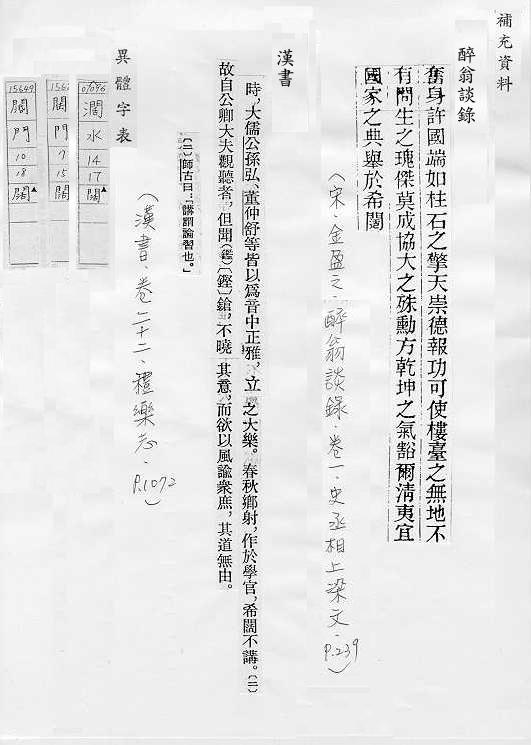 補充資料
醉翁談錄
奮身許國端如柱石之擎天崇德報功可使樓臺之無地不
有間生之瑰傑莫成協大之殊勳方乾坤之氣豁爾清夷宜
國家之典舉於希闊
(宋.金盈之.醉翁談錄.卷一.史丞相上梁文.P.239)
漢書
時,大儒公孫弘、董仲舒等皆以爲音中正雅,立之大樂。春秋鄉射,作於學官,希闊不講。〔二〕
故自公卿大夫觀聽者,但聞(鑑)〔鏗〕鎗,不曉其意,而欲以風諭衆庶,其道無由。
〔二〕師古曰:「講謂論習也。」
(漢書.卷二十二.禮樂志.P.1072)
異體字表
07076
濶
水
14
17
闊▲
門
15
闊▲
15649
門
10
18
闊▲